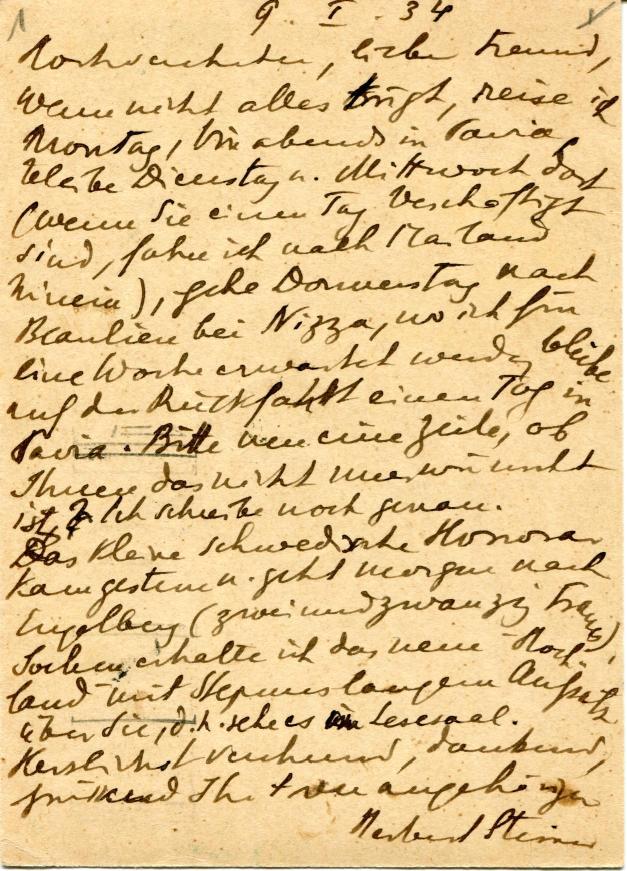 9. I. 34
Hochverehrter, lieber Freund,
wenn nicht alles trügt, reise ich
Montag, bin abends in Pavia,
bleibe Dienstag u. Mittwoch dort
(wenn Sie einen Tag beschäftigt
sind, fahre ich nach Mailand
hinein), gehe Donnerstag nach
Beaulieu bei Nizza, wo ich für
eine Woche erwartet werde, bleibe
auf der Rückfahrt einen Tag in
Pavia. Bitte nur eine Zeile, ob
Ihnen das nicht unerwünscht
ist. Ich schreibe noch genau.
Das kleine schwedische Honorar
kam gestern u. geht morgen nach
Engelberg (zweiundzwanzig Franc),
Soeben erhalte ich das neue Hoch-
land mit Stepuns langem Aufsatz
über Sie, d. h. sehe es im Lesesaal.
Herzlichst verehrend, dankend,
grüssend Ihr treu angehöriger
Herbert Steiner